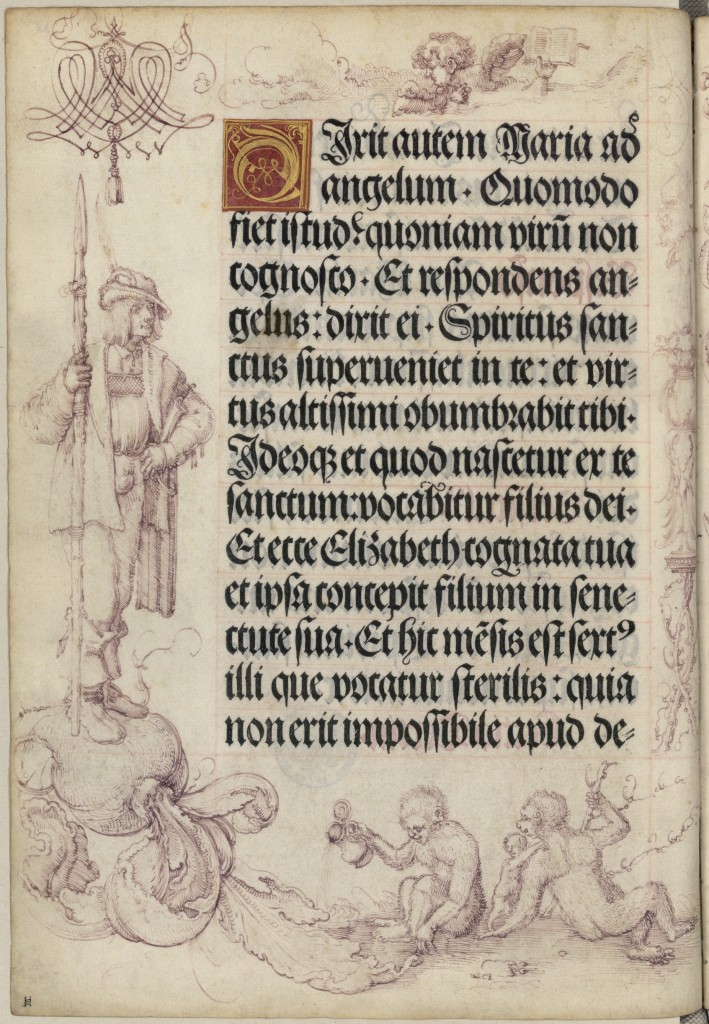 Dixit autem Maria ad
angelum. Quomodo
fiet istud? quoniam virū non
cognosco. Et respondens an-
gelus: dixit ei. Spiritus san-
ctus superueniet in te: et vir-
tus altissimi obumbrabit tibi.
Ideoqꝫ et quod nascetur ex te
sanctum: vocabitur filius dei.
Et ecce Elizabeth cognata tua
et ipsa concepit filium in sene-
ctute sua. Et hic mēsis est sextꝰ
illi que vocatur sterilis: quia
non erit impossibile apud de-